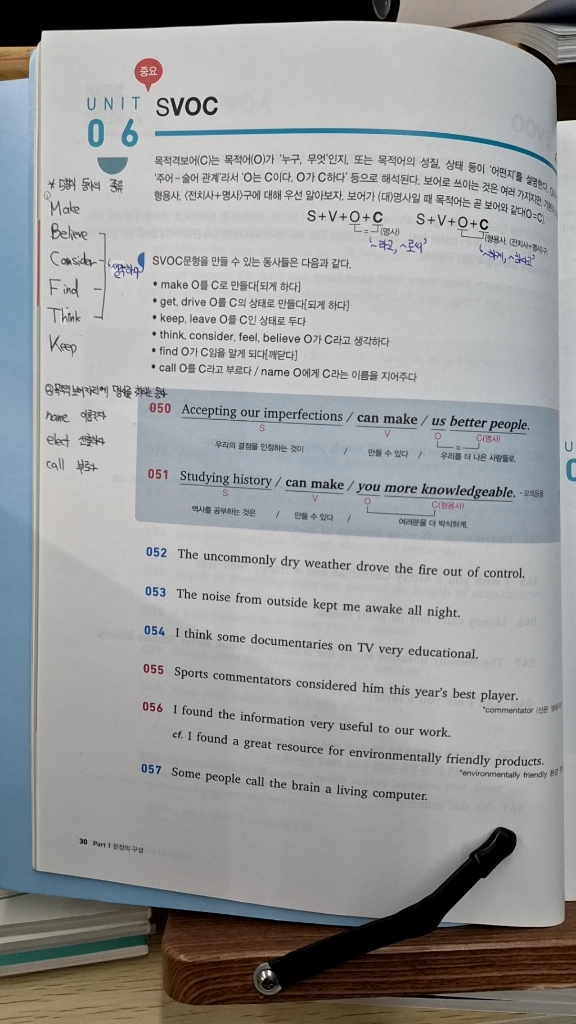 중요
UNIT
06
SVOC
목적격보어(C)는 목적어(O)가 '누구, 무엇'인지, 또는 목적어의 성질, 상태 등이 '어떤지'를 설명한다.
'주어-술어 관계'라서 'O는 C이다, O가 C하다' 등으로 해석된다. 보어로 쓰이는 것은 여러 가지지만,
형용사, 〈전치사+명사〉구에 대해 우선 알아보자. 보어가 (대)명사일 때 목적어는 곧 보어와 같다(O=C).
S+V+O+C S+V+O+C
= (명사) (형용사, 〈전치사+명사〉구)
'~라고, ~로서' '~하게, ~하다고'
종류
Make
Believe
Consider
생각하다
Find
Think
Keep
SVOC문형을 만들 수 있는 동사들은 다음과 같다.
• make O를 C로 만들다[되게 하다]
• get, drive O를 C의 상태로 만들다[되게 하다]
• keep, leave O를 C인 상태로 두다
• think, consider, feel, believe O가 C라고 생각하다
• find O가 C임을 알게 되다[깨닫다]
• call O를 C라고 부르다 / name O에게 C라는 이름을 지어주다
name
elect 선출하다
call 부르다
050 Accepting our imperfections / can make / us better people.
S V O = C(명사)
우리의 결점을 인정하는 것이 / 만들 수 있다 / 우리를 더 나은 사람들로.
051 Studying history / can make / you more knowledgeable. - 모의응용
S V O C(형용사)
역사를 공부하는 것은 / 만들 수 있다 / 여러분을 더 박식하게.
052 The uncommonly dry weather drove the fire out of control.
053 The noise from outside kept me awake all night.
054 I think some documentaries on TV very educational.
055 Sports commentators considered him this year's best player.
*commentator (신문·방송
056 I found the information very useful to our work.
cf. I found a great resource for environmentally friendly products.
*environmentally friendly 환경
057 Some people call the brain a living computer.
30 Part 1 문장의 구성